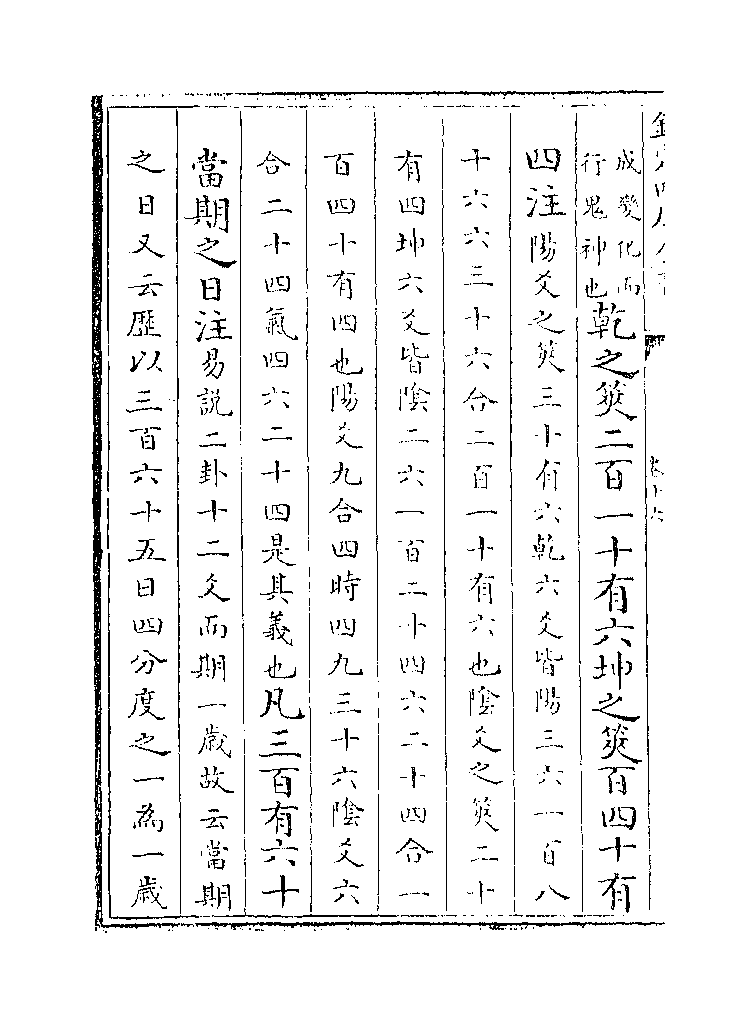 成變化而
行鬼神也
乾之筴二百一十有六坤之筴百四十有
四注陽爻之筴三十有六乾六爻皆陽三六一百八
十六六三十六合二百一十有六也陰爻之筴二十
有四坤六爻皆陰二六一百二十四六二十四合一
百四十有四也陽爻九合四時四九三十六陰爻六
合二十四氣四六二十四是其義也凡三百有六十
當期之日注易説二卦十二爻而期一歲故云當期
之日又云歴以三百六十五日四分度之一為一歲